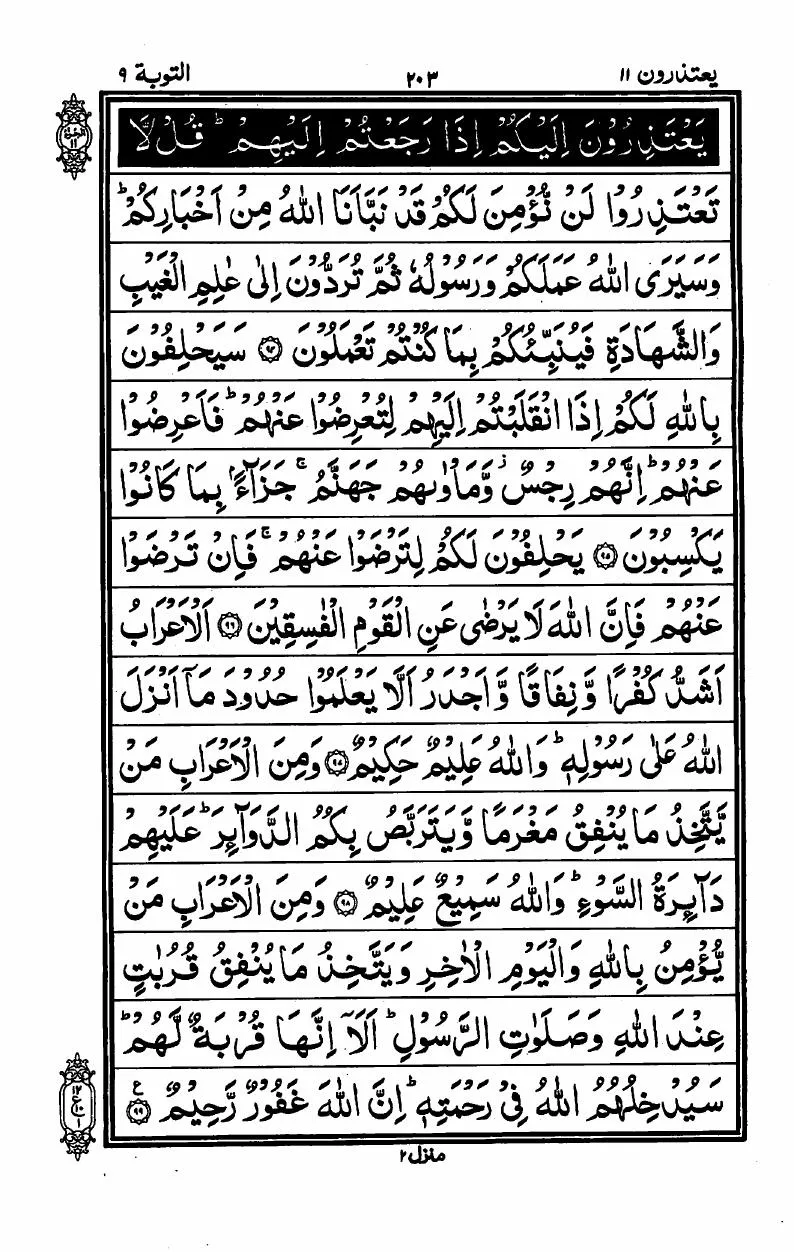 یعتذرون ۱۱ ۲۰۳ التوبة ۹
يَعْتَذِرُوْنَ اِلَيْكُمْ اِذَا رَجَعْتُمْ اِلَيْهِمْ ؕ قُلْ لَّا
تَعْتَذِرُوْا لَنْ نُّؤْمِنَ لَكُمْ قَدْ نَبَّاَنَا اللّٰهُ مِنْ اَخْبَارِكُمْ ؕ
وَسَيَرَى اللّٰهُ عَمَلَكُمْ وَرَسُوْلُهٗ ثُمَّ تُرَدُّوْنَ اِلٰى عٰلِمِ الْغَيْبِ
وَالشَّهَادَةِ فَيُنَبِّئُكُمْ بِمَا كُنْتُمْ تَعْمَلُوْنَ ۝۹۴ سَيَحْلِفُوْنَ
بِاللّٰهِ لَكُمْ اِذَا انْقَلَبْتُمْ اِلَيْهِمْ لِتُعْرِضُوْا عَنْهُمْ ؕ فَاَعْرِضُوْا
عَنْهُمْ ؕ اِنَّهُمْ رِجْسٌ ز وَّمَاْوٰىهُمْ جَهَنَّمُ ۚ جَزَآءًۢ بِمَا كَانُوْا
يَكْسِبُوْنَ ۝۹۵ يَحْلِفُوْنَ لَكُمْ لِتَرْضَوْا عَنْهُمْ ۚ فَاِنْ تَرْضَوْا
عَنْهُمْ فَاِنَّ اللّٰهَ لَا يَرْضٰى عَنِ الْقَوْمِ الْفٰسِقِيْنَ ۝۹۶ اَلْاَعْرَابُ
اَشَدُّ كُفْرًا وَّنِفَاقًا وَّاَجْدَرُ اَلَّا يَعْلَمُوْا حُدُوْدَ مَاۤ اَنْزَلَ
اللّٰهُ عَلٰى رَسُوْلِهٖ ؕ وَاللّٰهُ عَلِيْمٌ حَكِيْمٌ ۝۹۷ وَمِنَ الْاَعْرَابِ مَنْ
يَّتَّخِذُ مَا يُنْفِقُ مَغْرَمًا وَّيَتَرَبَّصُ بِكُمُ الدَّوَآئِرَ ؕ عَلَيْهِمْ
دَآئِرَةُ السَّوْءِ ؕ وَاللّٰهُ سَمِيْعٌ عَلِيْمٌ ۝۹۸ وَمِنَ الْاَعْرَابِ مَنْ
يُّؤْمِنُ بِاللّٰهِ وَالْيَوْمِ الْاٰخِرِ وَيَتَّخِذُ مَا يُنْفِقُ قُرُبٰتٍ
عِنْدَ اللّٰهِ وَصَلَوٰتِ الرَّسُوْلِ ؕ اَلَاۤ اِنَّهَا قُرْبَةٌ لَّهُمْ ؕ
سَيُدْخِلُهُمُ اللّٰهُ فِيْ رَحْمَتِهٖ ؕ اِنَّ اللّٰهَ غَفُوْرٌ رَّحِيْمٌ ۝۹۹ ع
۱۲
ع ۱۰
۱
منزل ۲